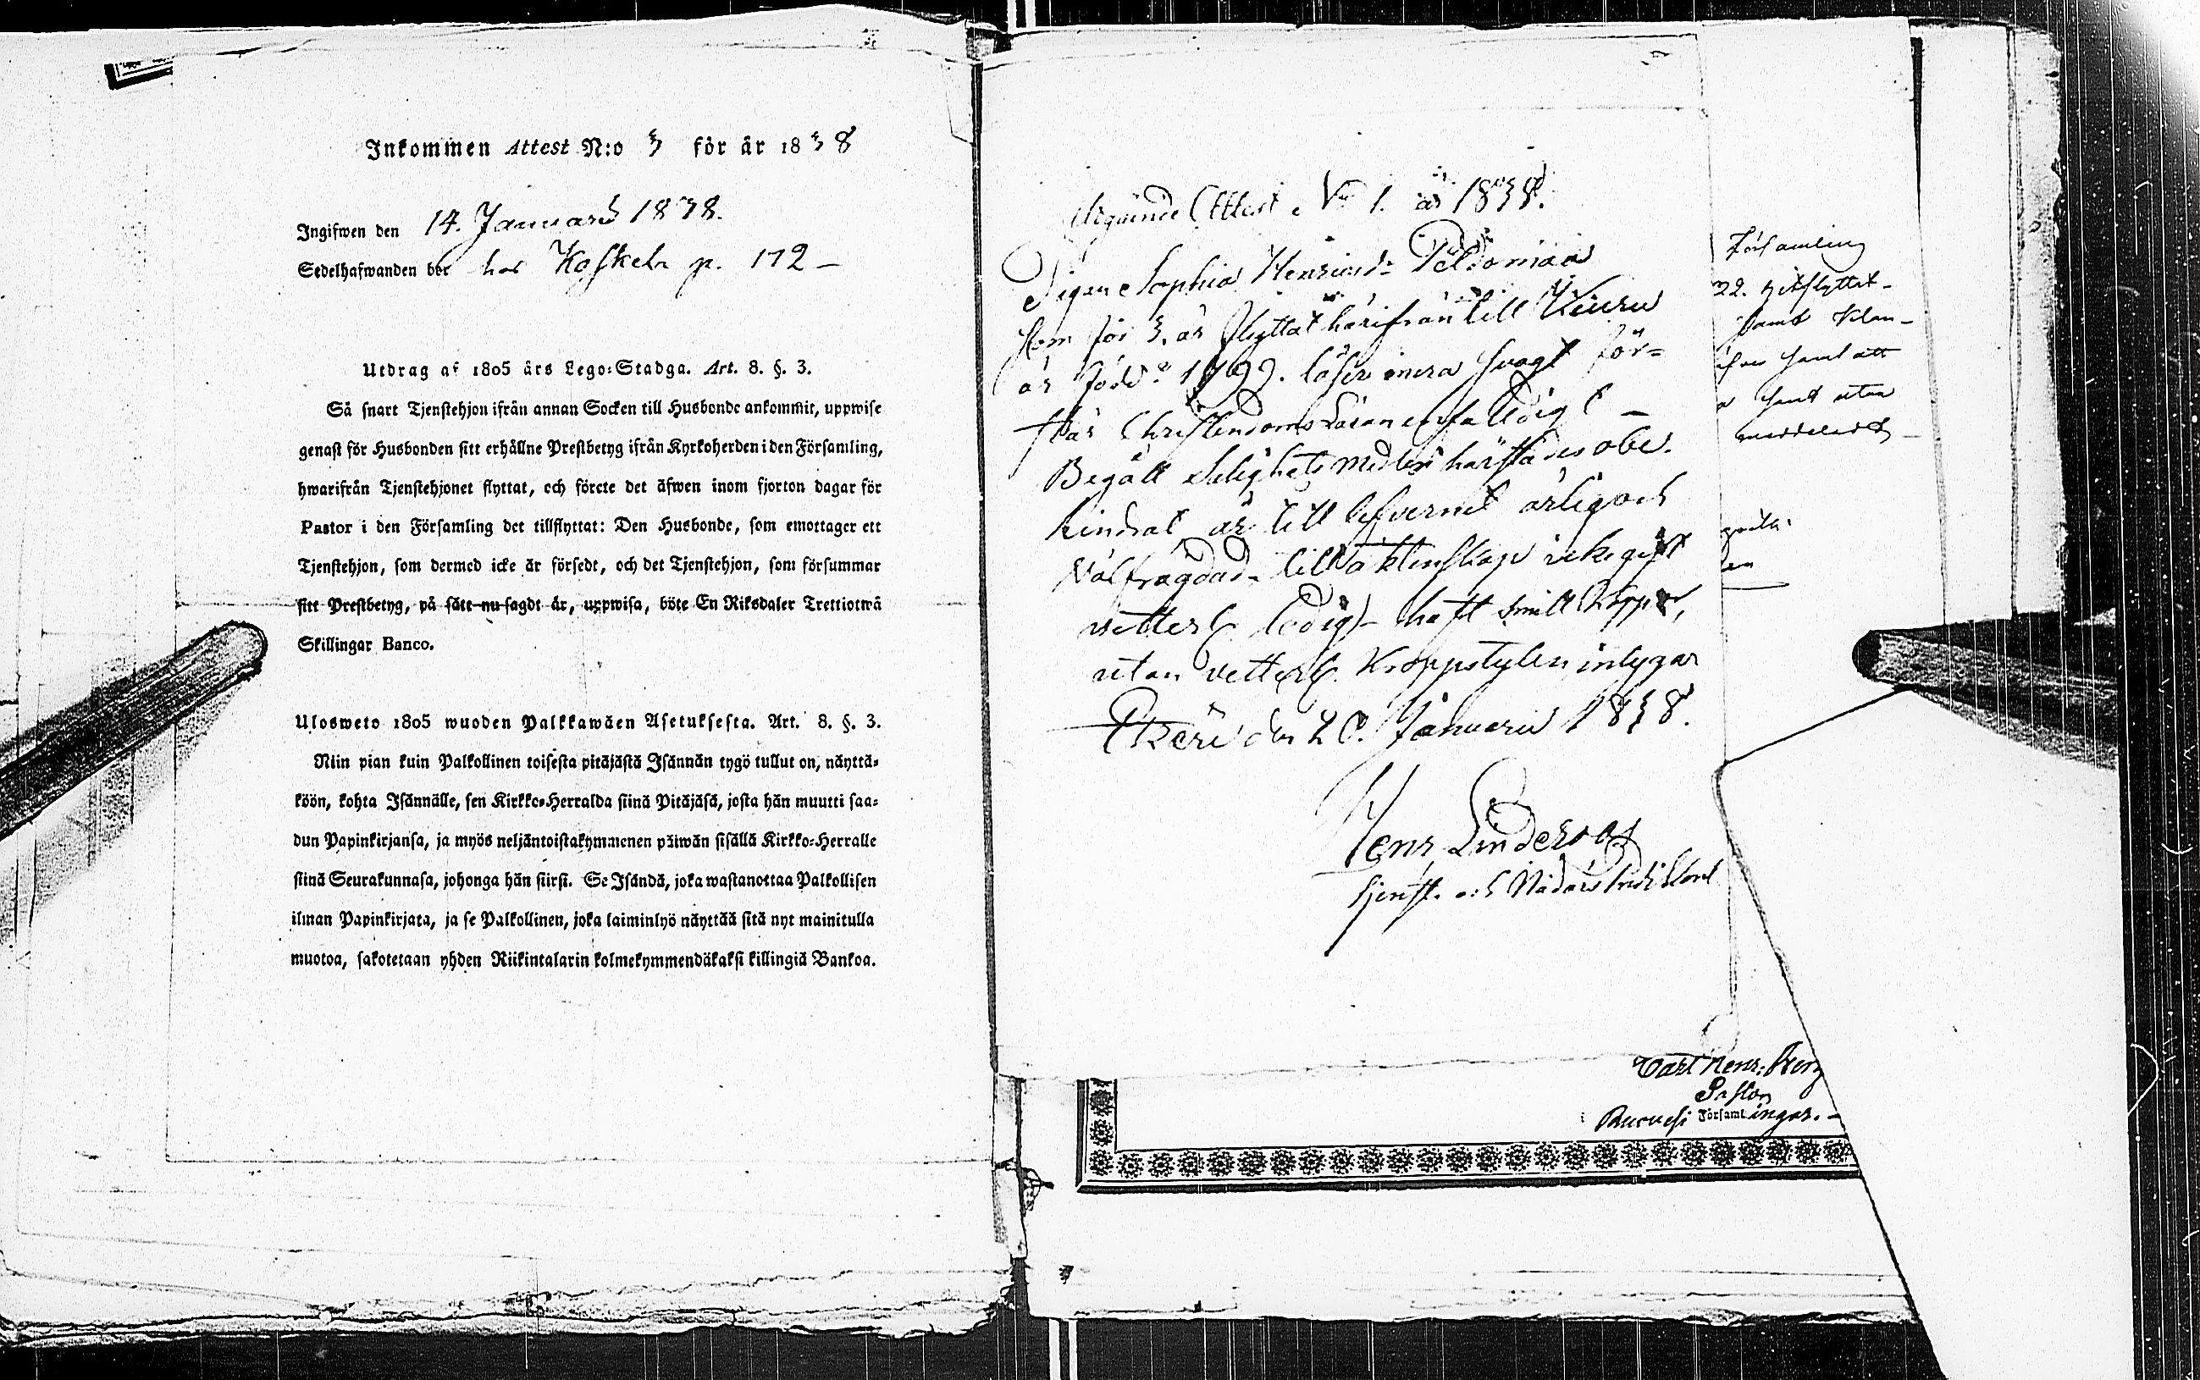 Inkommen Attest N:o 3 för år 1838
Ingifwen den 14. Januarii 1838.
Sedelhafwanden bor hos Koskela p. 172 –
Utdrag af 1805 års Lego-Stadga. Art. 8. §. 3.
Så snart Tjenstehjon ifrån annan Socken till Husbonde ankommit, uppwise
genast för Husbonden sitt erhållne Prestbetyg ifrån Kyrkoherden i den Församling,
hwarifrån Tjenstehjonet flyttat, och förete det äfwen inom fjorton dagar för
Pastor i den Församling det tillflyttat: Den Husbonde, som emottager ett
Tjenstehjon, som dermed icke är försedt, och det Tjenstehjon, som försummar
sitt Prestbetyg, på sätt nu sagdt är, uppwisa, böte En Riksdaler Trettiotwå
Skillingar Banco.
Ulosweto 1805 wuoden Palkkawäen Asetuksesta. Art. 8. §. 3.
Niin pian kuin Palkollinen toisesta pitäjästä Isännän tygö tullut on, näyttä-
köön, kohta Isännälle, sen Kirkko-Herralda siinä Pitäjäsä, josta hän muutti saa-
dun Papinkirjansa, ja myös neljäntoistakymmenen päiwän sisällä Kirkko-Herralle
siinä Seurakunnasa, johonga hän siirsi. Se Isändä, joka wastanottaa Palkollisen
ilman Papinkirjata, ja se Palkollinen, joka laiminlyö näyttää sitä nyt mainitulla
muotoa, sakotetaan yhden Riikintalarin kolmekymmendäkaksi killingiä Bankoa.
Utgående Attest No 1. år 1838.
Pigan Sophia Henricsd:r
som för 3. år flyttat härifrån till Keuru
är född 1799. läser innra svagt för-
står Christendoms Läran enfaldigt –
Begått Salighets medlen härstädes obe-
hindrat är till lefvernet ärlig och
Välfrägdad till äktenskap icke gift
vetterl. ledig haft små Koppor,
utan vetterl. Kroppslyten intygar
Etseri den 20. Januarii 1838.
Henr
tjenst. och Nådårs Predikant
Församling
22. utflyttat
samt
samt att
samt utan
meddeladt
Carl Henr:
Pastor
Ruovesi Församlingar. –